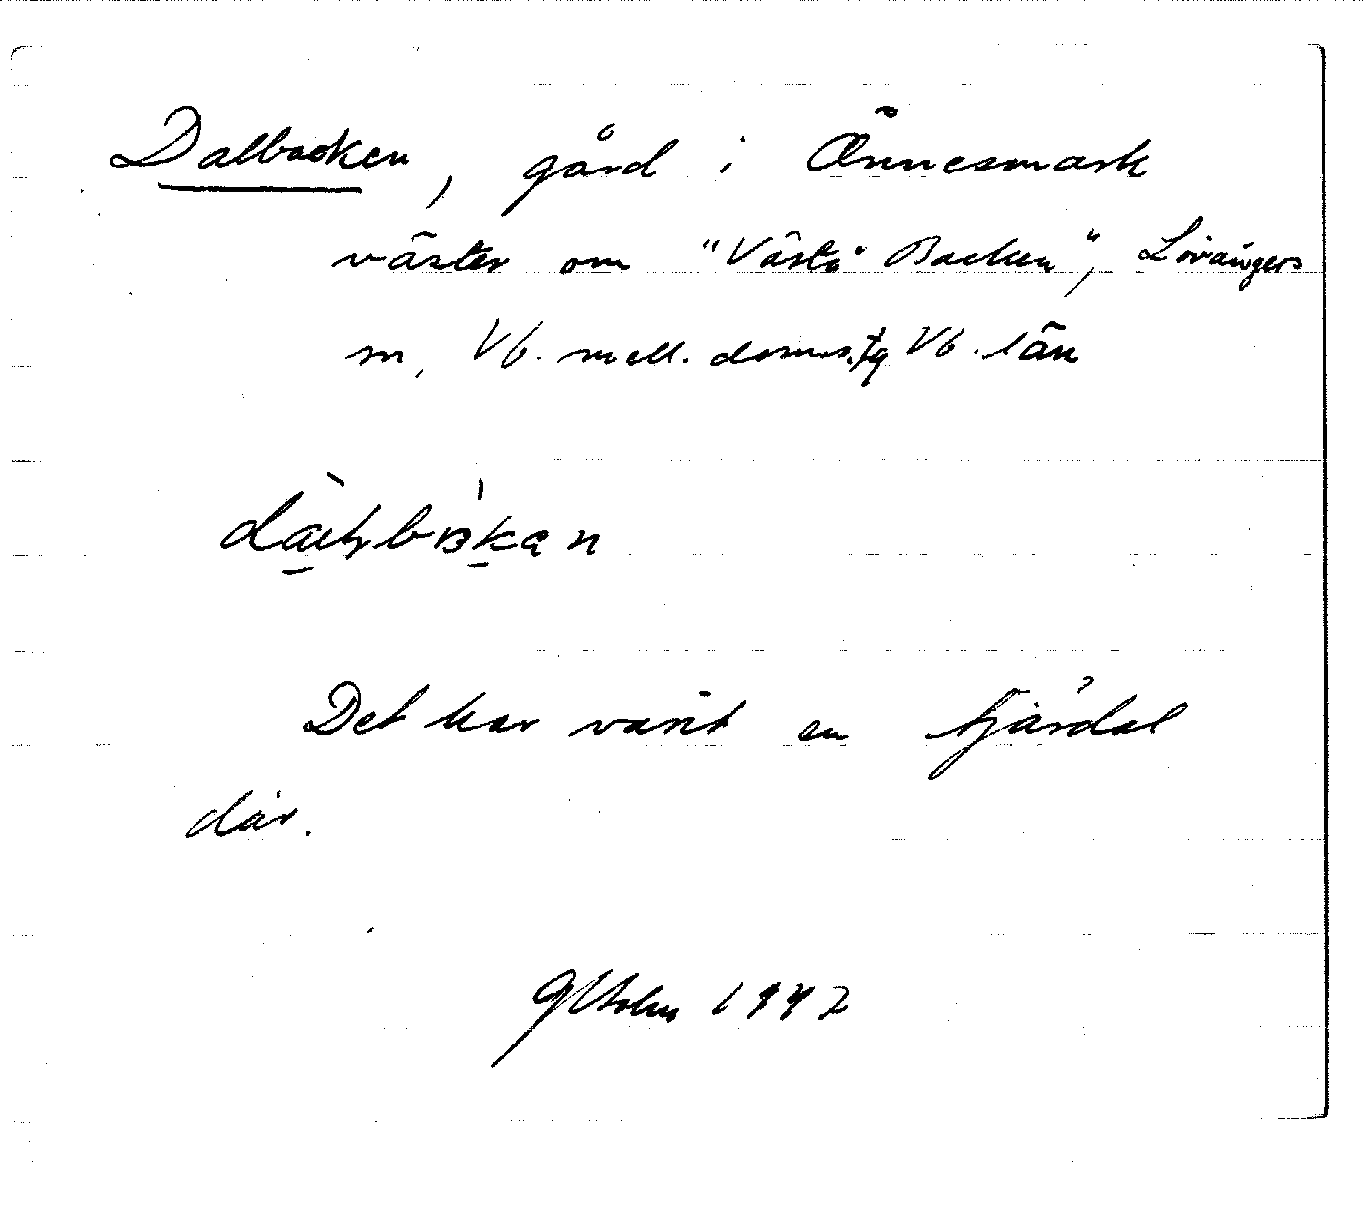 Dalbacken, gård i Önnesmark
väster om "Västå Backen", Lövångers
sn, Vb. mell. doms.tg Vb. län
Det har varit en tjärdal
där.
1942